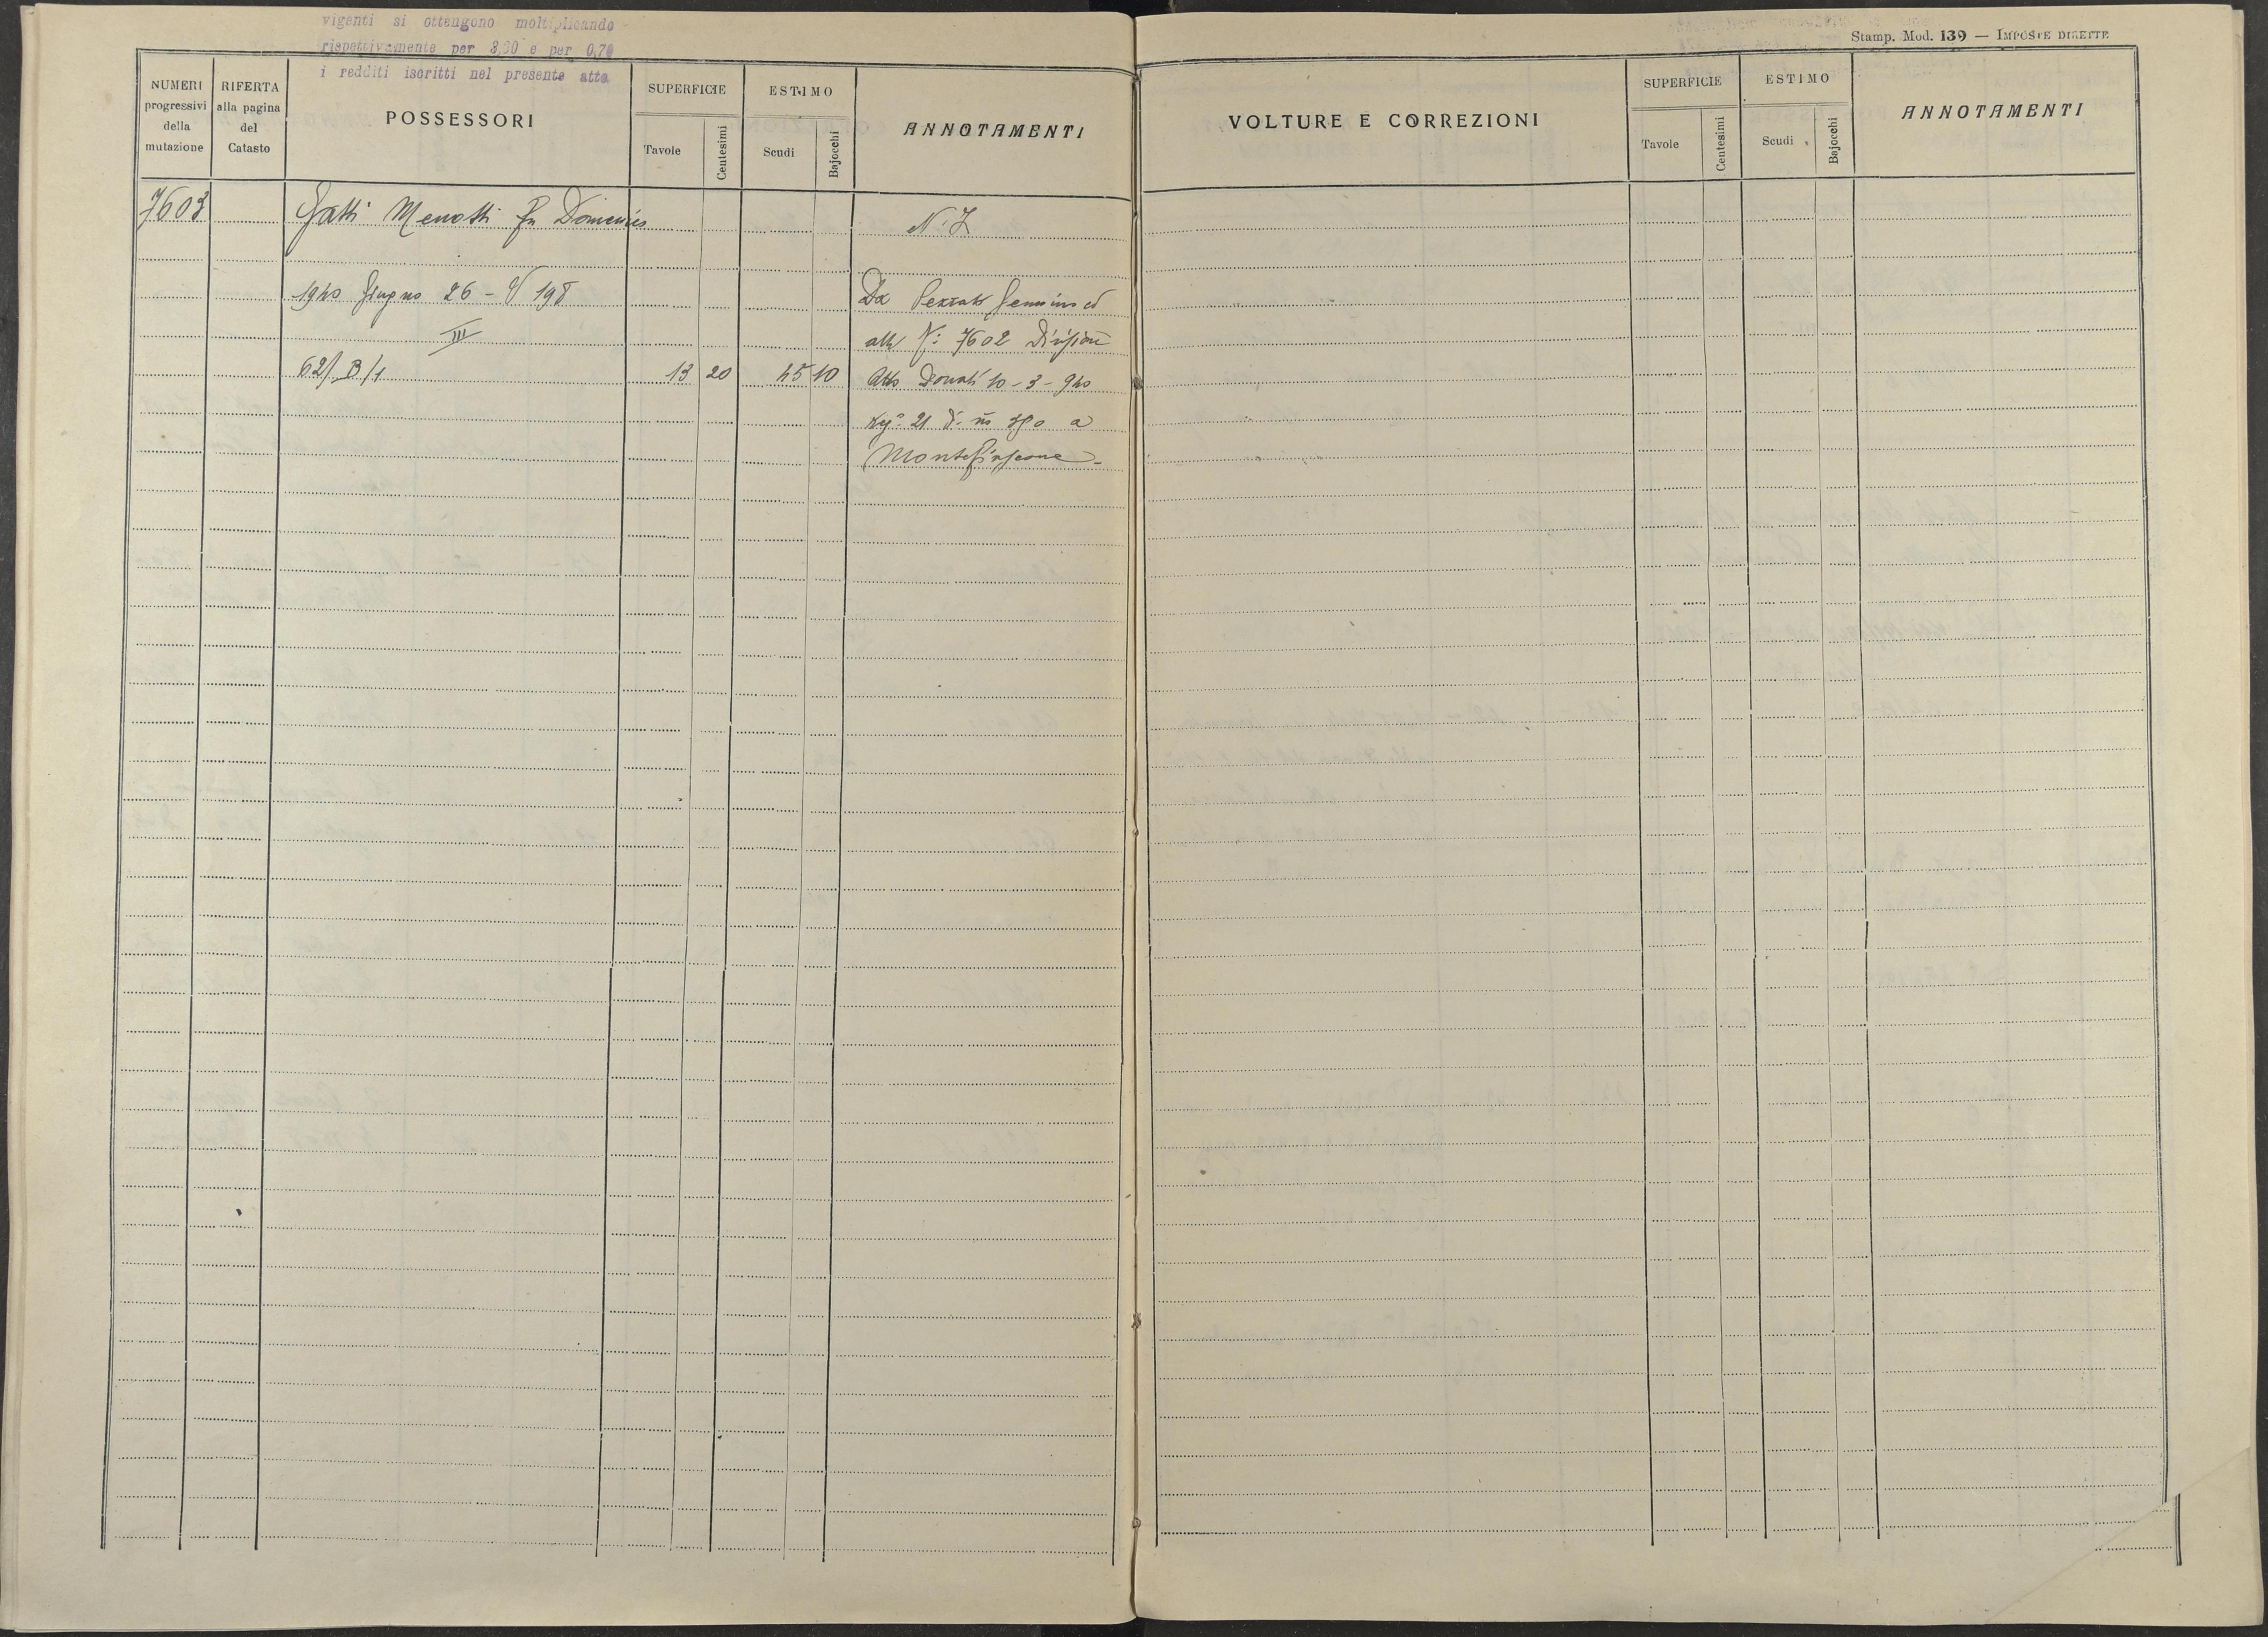 vigenti si ottengono moltiplicando
rispettivamente per 3,90 e per 0,70
i redditi iscritti nel presente atto
Stamp. Mod. 139 — IMPOSTE DIRETTE
NUMERI progressivi della mutazione
RIFERTA alla pagina del Catasto
POSSESSORI
SUPERFICIE
Tavole
Centesimi
ESTIMO
Scudi
Bajocchi
ANNOTAMENTI
VOLTURE E CORREZIONI
SUPERFICIE
Tavole
Centesimi
ESTIMO
Scudi
Bajocchi
ANNOTAMENTI
7603 Gatti Menotti fu Domenico
1940 Giugno 26 - 198 Da
III all N: 7602 Divisione
62/B/1 13 20 45 10 Atto Donati 10-3-940
21 a
Montefiascone